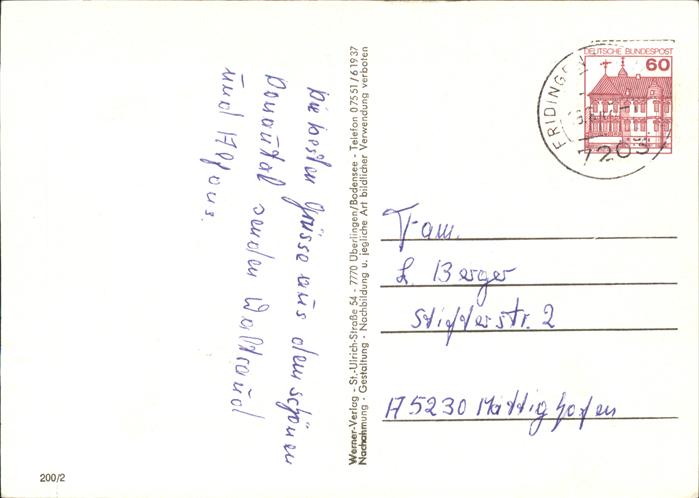 Die besten Grüsse aus dem schönen
Donautal senden Waltraud
und Alfons.
Werner-Verlag - St.-Ulrich-Straße 54 - 7770 Überlingen/Bodensee - Telefon 07551/61937
Nachahmung - Gestaltung - Nachbildung u. jegliche Art bildlicher Verwendung verboten
DEUTSCHE BUNDESPOST
60
FRIDINGEN
7203
Fam.
L. Berger
Stifterstr. 2
A 5230 Mattighofen
200/2